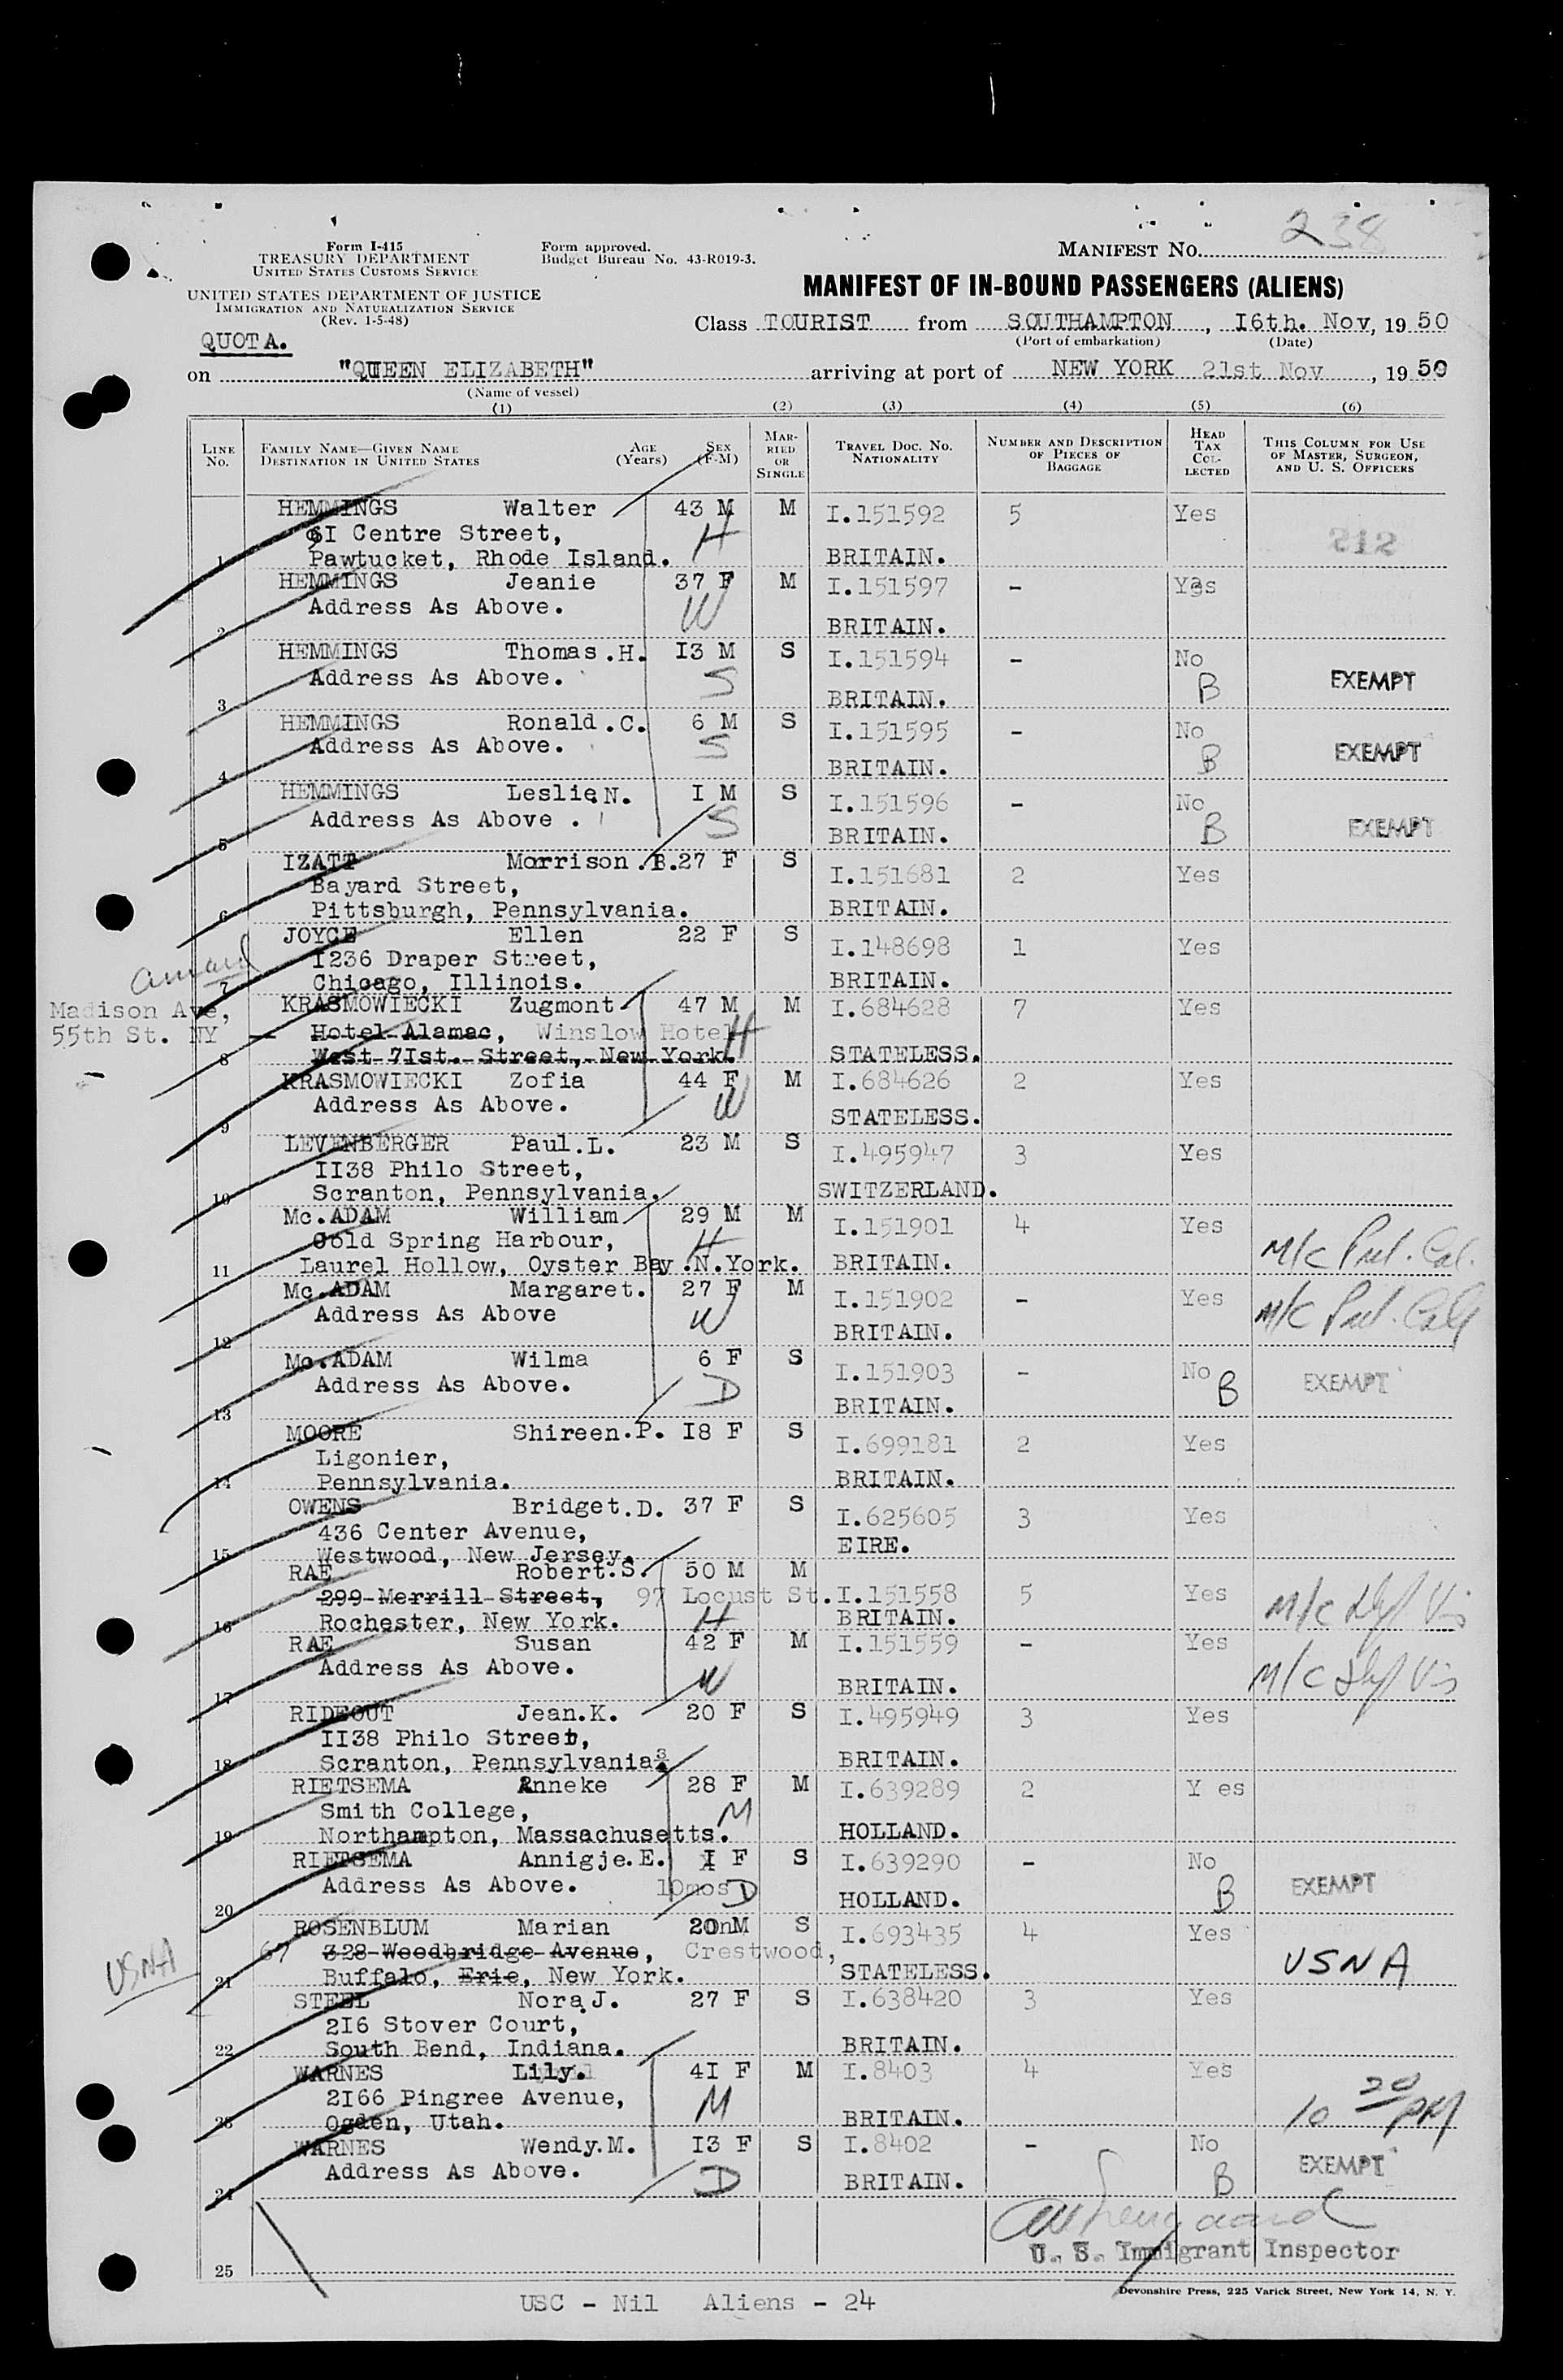 238
Form I-415
TREASURY DEPARTMENT
UNITED STATES CUSTOMS SERVICE
Form approved.
Budget Bureau No. 43-R019-3.
MANIFEST NO.
UNITED STATES DEPARTMENT OF JUSTICE
IMMIGRATION AND NATURALIZATION SERVICE
(Rev. 1-5-48)
MANIFEST OF IN-BOUND PASSENGERS (ALIENS)
QUOTA.
Class TOURIST from SOUTHAMPTON, I6th. Nov, 19 50
(Port of embarkation) (Date)
on "QUEEN ELIZABETH" arriving at port of NEW YORK 21st Nov, 19 50
(Name of vessel)
(1) (2) (3) (4) (5) (6)
LINE NO. FAMILY NAME—GIVEN NAME DESTINATION IN UNITED STATES AGE (Years) SEX (F-M) MARRIED OR SINGLE TRAVEL DOC. NO. NATIONALITY NUMBER AND DESCRIPTION OF PIECES OF BAGGAGE HEAD TAX COLLECTED THIS COLUMN FOR USE OF MASTER, SURGEON, AND U. S. OFFICERS
HEMMINGS Walter 43 M M I.151592 5 Yes
6I Centre Street, H 212
1 Pawtucket, Rhode Island. BRITAIN.
HEMMINGS Jeanie 37 F M I.151597 - Yes
Address As Above. W
2 BRITAIN.
HEMMINGS Thomas.H. I3 M S I.151594 - No
Address As Above. S B EXEMPT
3 BRITAIN.
HEMMINGS Ronald.C. 6 M S I.151595 - No
Address As Above. S B EXEMPT
4 BRITAIN.
HEMMINGS Leslie.N. I M S I.151596 - No
Address As Above . S B EXEMPT
5 BRITAIN.
IZATT Morrison.B. 27 F S I.151681 2 Yes
Bayard Street,
6 Pittsburgh, Pennsylvania. BRITAIN.
JOYCE Ellen 22 F S I.148698 1 Yes
1236 Draper Street,
amend
7 Chicago, Illinois. BRITAIN.
Madison Ave,
55th St. NY
KRASMOWIECKI Zugmont 47 M M I.684628 7 Yes
Hotel Alamac, Winslow Hotel H
8 West 7Ist. Street, New York. STATELESS.
KRASMOWIECKI Zofia 44 F M I.684626 2 Yes
Address As Above. W
9 STATELESS.
LEVENBERGER Paul.L. 23 M S I.495947 3 Yes
II38 Philo Street,
10 Scranton, Pennsylvania. SWITZERLAND.
Mc.ADAM William 29 M M I.151901 4 Yes
Cold Spring Harbour, H
11 Laurel Hollow, Oyster Bay.N.York. BRITAIN. M/C
Mc.ADAM Margaret. 27 F M I.151902 - Yes
Address As Above W M/C
12 BRITAIN.
Mc.ADAM Wilma 6 F S I.151903 - No
Address As Above. D B EXEMPT
13 BRITAIN.
MOORE Shireen.P. I8 F S I.699181 2 Yes
Ligonier,
14 Pennsylvania. BRITAIN.
OWENS Bridget.D. 37 F S I.625605 3 Yes
436 Center Avenue,
15 Westwood, New Jersey. EIRE.
RAE Robert.S. 50 M M
299 Merrill Street, 97 Locust St. I.151558 5 Yes M/C
16 Rochester, New York. H BRITAIN.
RAE Susan 42 F M I.151559 - Yes
Address As Above. W M/C
17 BRITAIN.
RIDEOUT Jean.K. 20 F S I.495949 3 Yes
II38 Philo Street,
18 Scranton, Pennsylvania. BRITAIN.
RIETSEMA Anneke 28 F M I.639289 2 Y es
Smith College, M
19 Northampton, Massachusetts. HOLLAND.
RIETSEMA Annigje.E. I F S I.639290 - No
Address As Above. 10mos D B EXEMPT
20 HOLLAND.
ROSENBLUM Marian 20 M S I.693435 4 Yes
USNA 67 328 Woodbridge Avenue, Crestwood, USNA
21 Buffalo, Erie, New York. STATELESS.
STEEL Nora J. 27 F S I.638420 3 Yes
2I6 Stover Court,
22 South Bend, Indiana. BRITAIN.
WARNES Lily. 4I F M I.8403 4 Yes
2I66 Pingree Avenue, M 10 20 PM
23 Ogden, Utah. BRITAIN.
WARNES Wendy.M. I3 F S I.8402 - No
Address As Above. D B EXEMPT
24 BRITAIN.
U. S. Immigrant Inspector
25
Devonshire Press, 225 Varick Street, New York 14, N. Y.
USC - Nil Aliens - 24